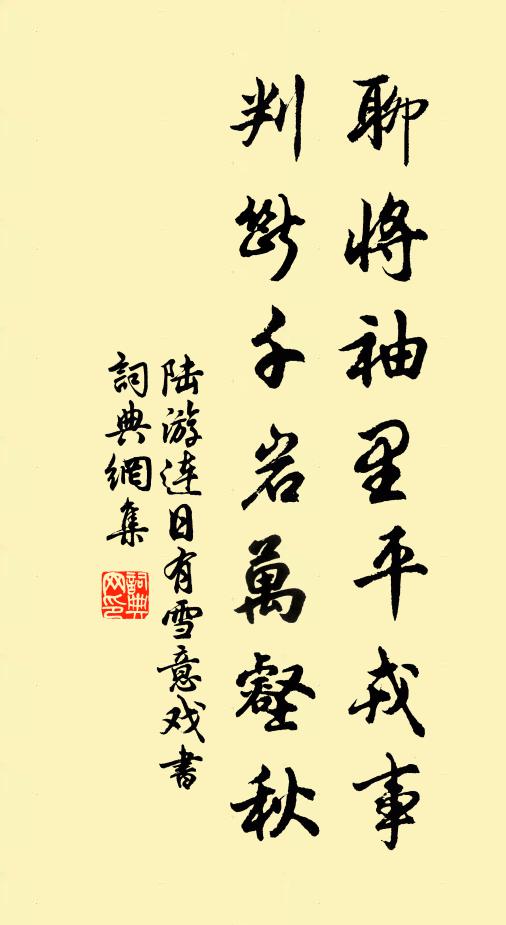 聊将袖里平戎事
判断千岩萬壑秋
陆游连日有雪意戏書
詞典網集
詞典网印